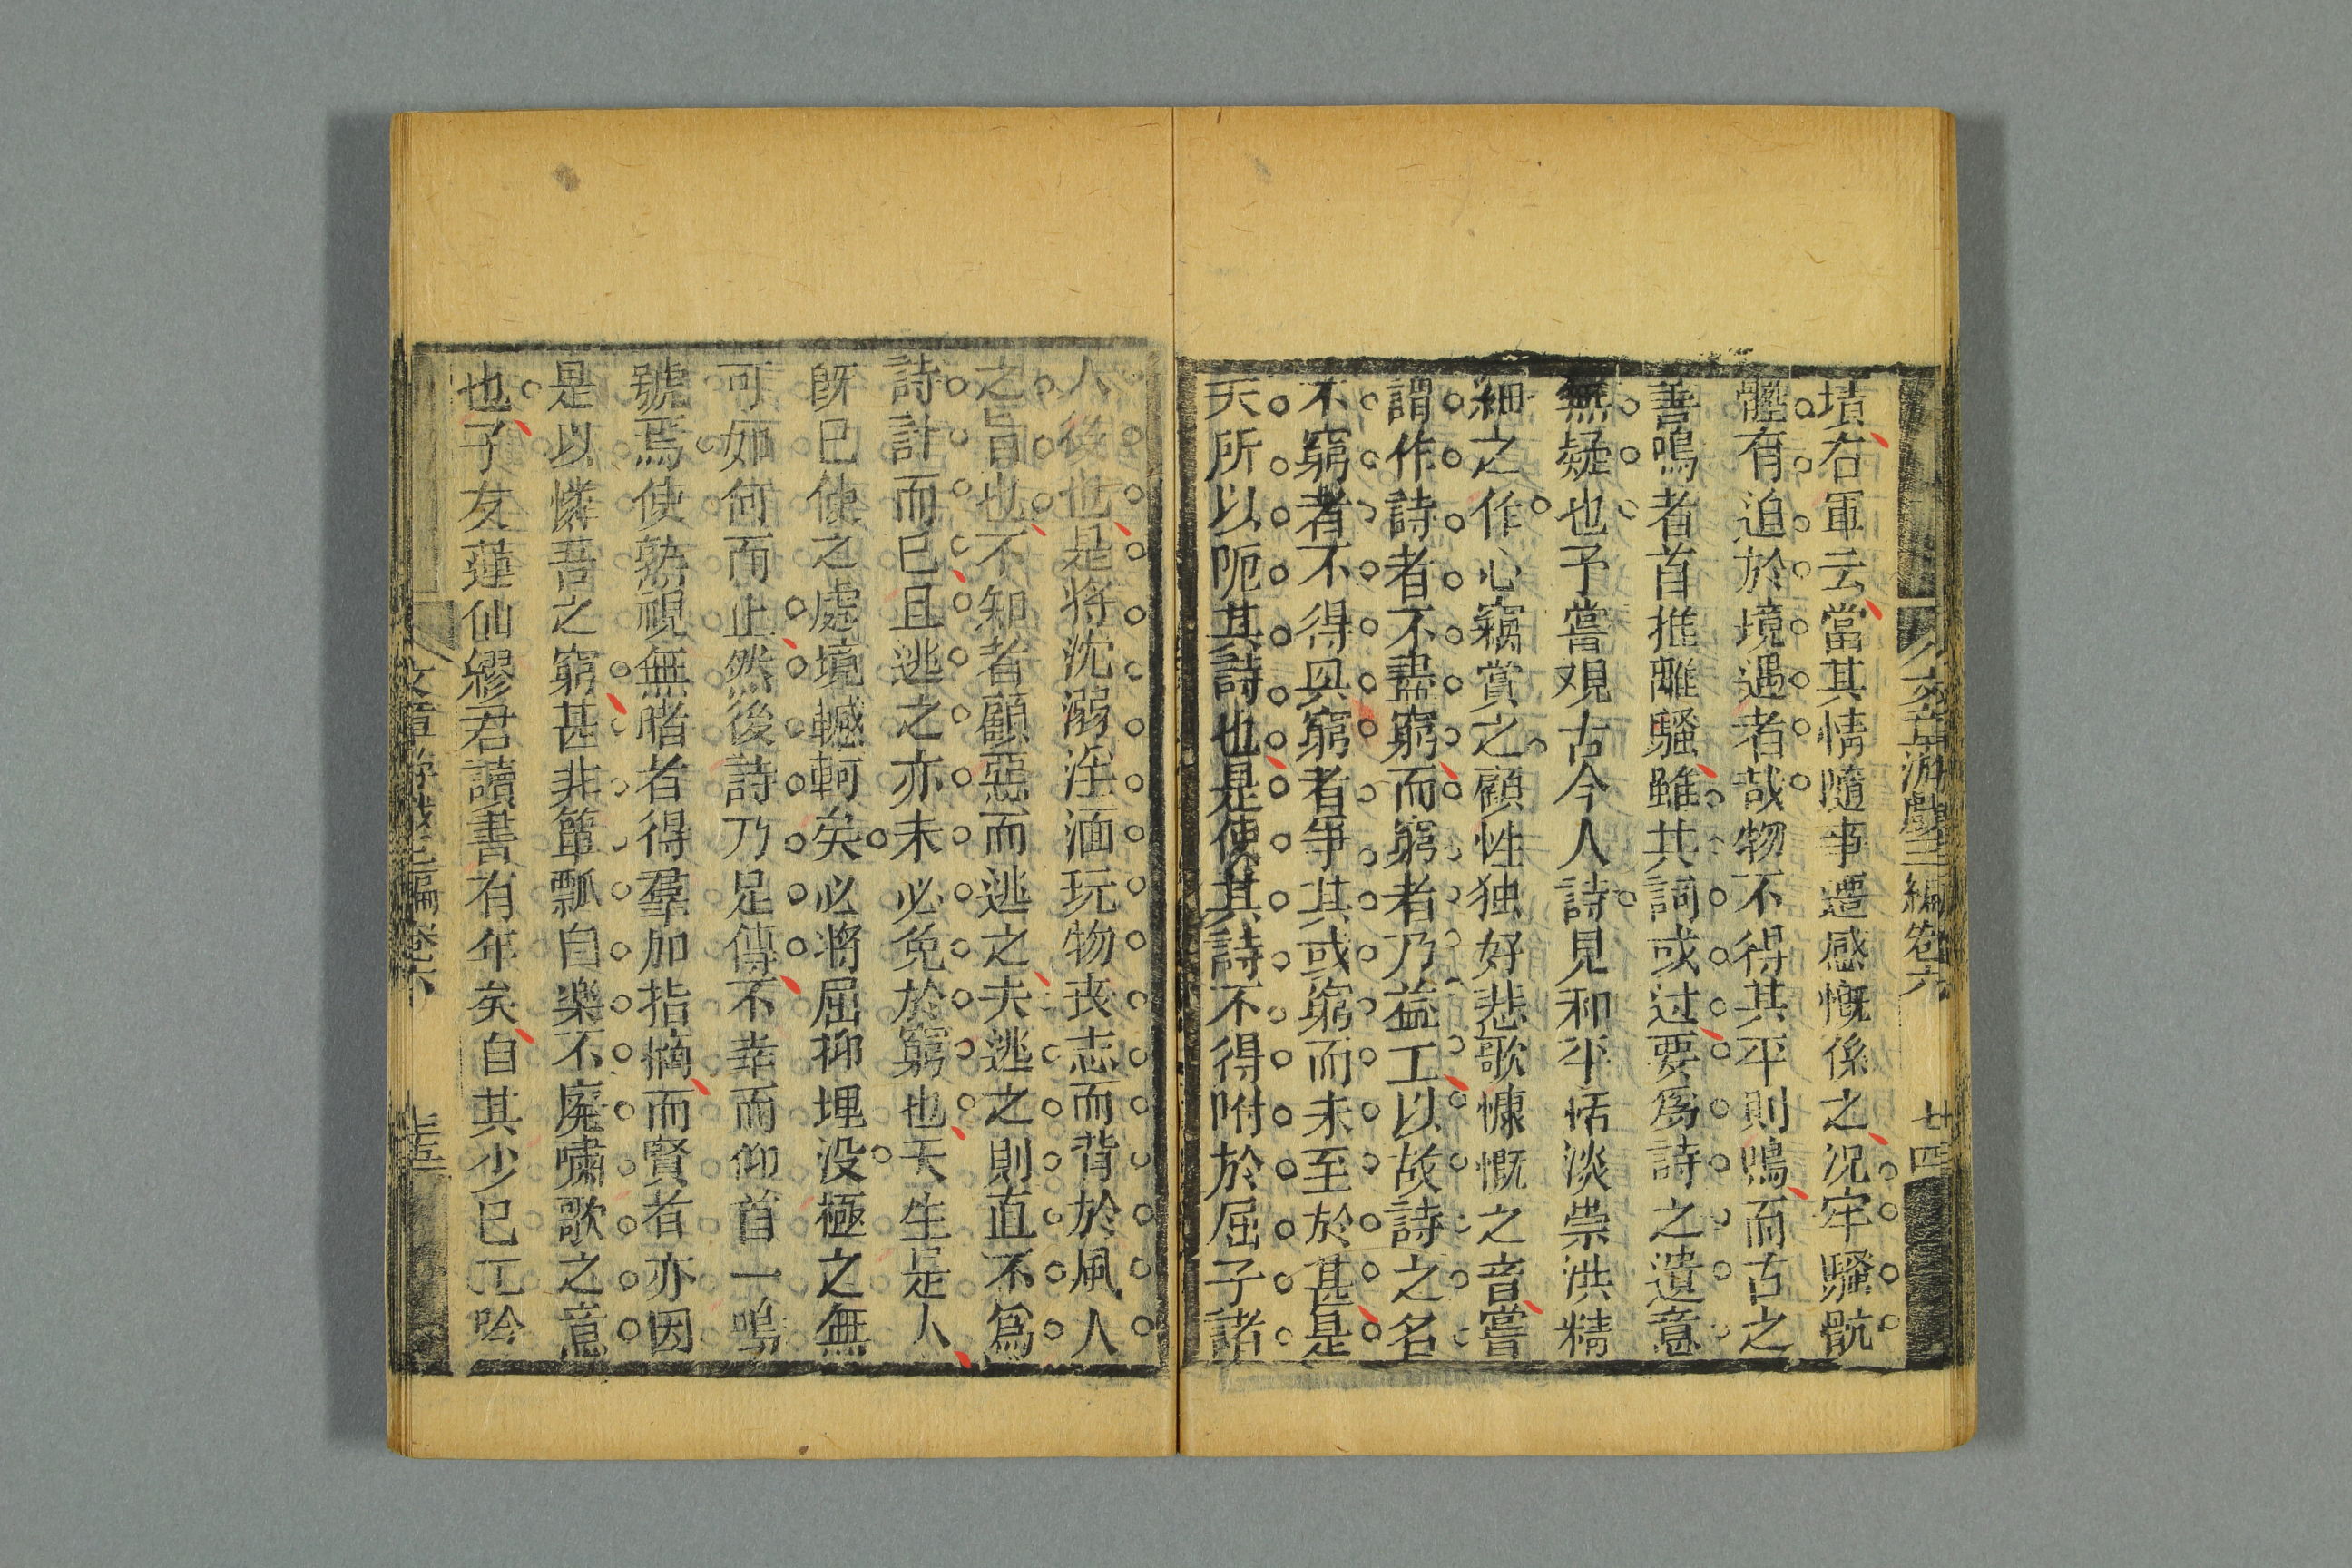 文章游戲三編卷六
廿四
墳右軍云當其情隨事遷感慨係之況牢騷骯
髒有迫於境遇者哉物不得其平則鳴而古之
善鳴者首推離騷雖其詞或过要爲詩之遺意
無疑也予嘗覌古今人詩見和平恬淡崇洪精
細之作心竊賞之顧性独好悲歌慷慨之音嘗
謂作詩者不盡窮而窮者乃益工以故詩之名
不窮者不得與窮者争其或窮而未至於甚是
天所以阨其詩也是使其詩不得附於屈子諸
人後也是将沈溺淫湎玩物丧志而背於風人
之旨也不知者顧惡而逃之夫逃之則直不爲
詩計而已且逃之亦未必免於窮也天生是人
旣已使之處境轗軻矣必将屈抑埋没極之無
可如何而止然後詩乃足傳不幸而仰首一鳴
號焉使熟視無睹者得羣加指摘而賢者亦因
是以憐吾之窮甚非簞瓢自樂不廢嘯歌之意
也予友蓮仙繆君讀書有年矣自其少已工吟
文章游戲三編卷六